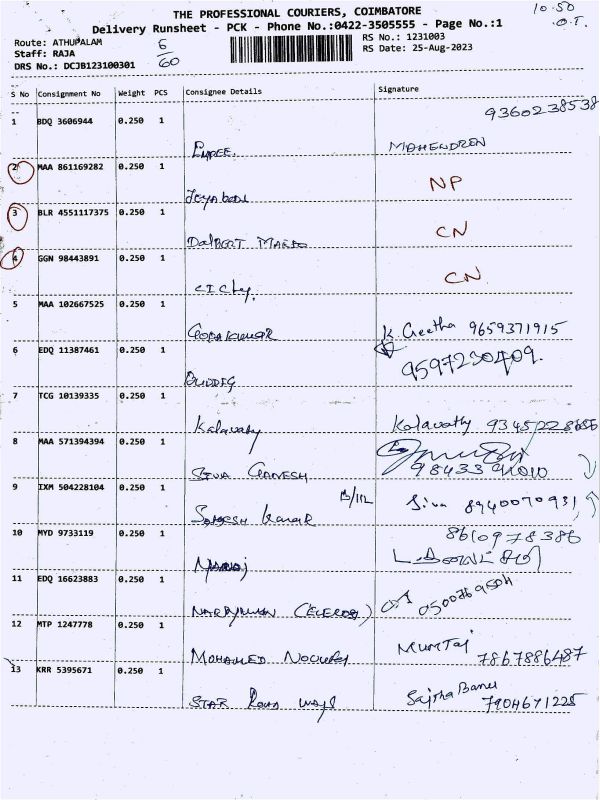 THE PROFESSIONAL COURIERS, COIMBATORE
10:50
Delivery Runsheet - PCK - Phone No.:0422-3505555 - Page No.:1
O.T.
Route: ATHUPALAM
6
RS No.: 1231003
Staff: RAJA
60
RS Date: 25-Aug-2023
DRS No.: DCJB123100301
S No Consignment No Weight PCS Consignee Details Signature
1 BDQ 3606944 0.250 1 9360238538
MAHENDREN
2 MAA 861169282 0.250 1 NP
3 BLR 4551117375 0.250 1 CN
DalBERT MARIO
4 GGN 98443891 0.250 1 CN
5 MAA 102667525 0.250 1
Gopakumar K. Geetha 9659371915
6 EDQ 11387461 0.250 1 9597230409.
7 TCG 10139335 0.250 1
Kalavathy Kalavathy 9345228686
8 MAA 571394394 0.250 1
SIVA GANESH
9 IXM 504228104 0.250 1
Kumar Siva 8940070931
10 MYD 9733119 0.250 1 8610978386
Manoj
11 EDQ 16623883 0.250 1
12 MTP 1247778 0.250 1 Mumtaj
MOHAMED 7867886487
13 KRR 5395671 0.250 1 Sajitha Banu
STAR Road ways 7904671225